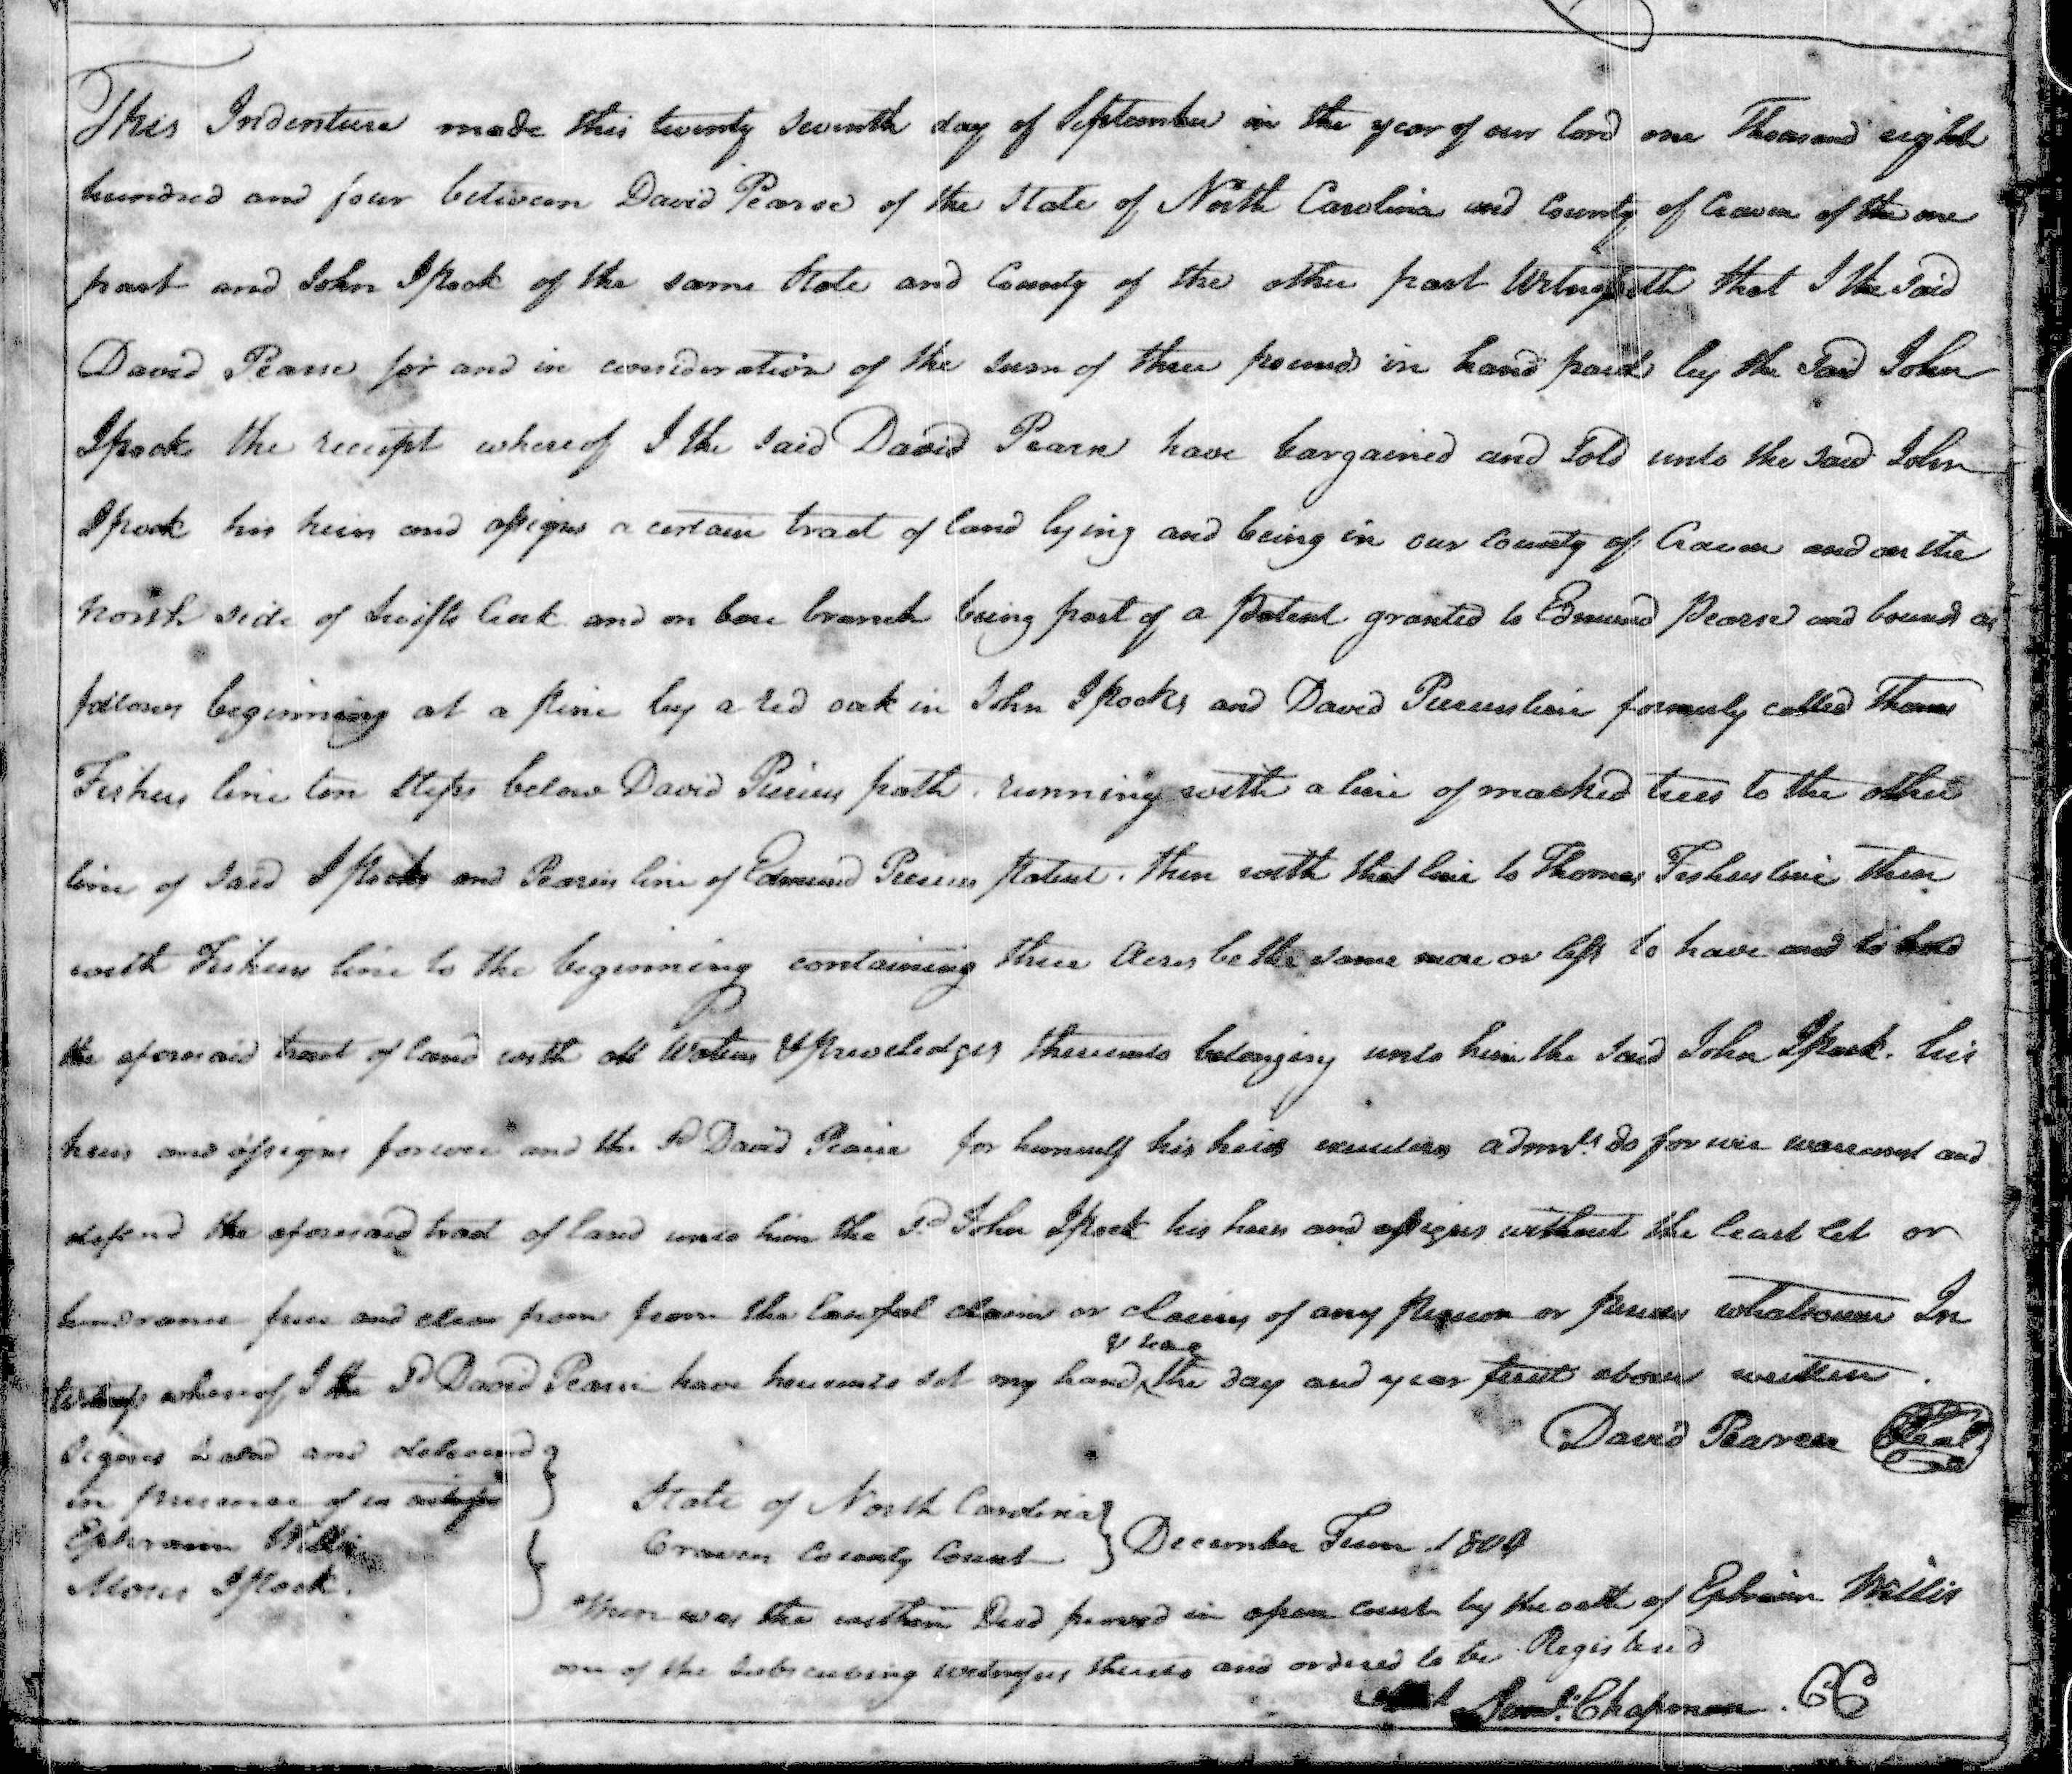 This Indenture made this twenty seventh day of September in the year of our lord one Thousand eight
hundred and four between David Pearse of the State of North Carolina and County of Craven of the one
part and John Ipock of the same State and County of the other part Witnesseth that I the said
David Pearse for and in consideration of the sum of three pounds in hand paid by the said John
Ipock the receipt whereof I the said David Pearse have bargained and Sold unto the said John
Ipock his heirs and assigns a certain tract of land lying and being in our County of Craven and on the
North side of Swifts Creek and on bare branch being part of a Patent granted to Edmund Pearse and bounds as
follows beginning at a pine by a red oak in John Ipocks and David Pierces line formerly called Thomas
Fishers line ten steps below David Pierces path. running with a line of marked trees to the other
line of said Ipocks and Pearses line of Edmund Pierces patent. then with that line to Thomas Fishers line then
with Fishers line to the beginning containing three Acres be the same more or less to have and to hold
the aforesaid tract of land with all Waters & priveledges thereunto belonging unto him the said John Ipock. his
heirs and assigns forever and the Sd David Pearse for himself his heirs executors admrs. do forever warrant and
defend the aforesaid tract of land unto him the Sd. John Ipock his heirs and assigns without the least let or
hindrance free and clear from from the lawful claim or claims of any person or persons whatsoever In
& seal
Witness whereof I the Sd David Pearse have hereunto set my hand the day and year first above written.
David Pearce Seal
Signed Sealed and delivered
in presence of us
Ephraim Willis
Moses Ipock.
State of North Carolina
Craven County Court
December Term 1804
Then was the within Deed proved in open court by the oath of Ephraim Willis
one of the subscribing witnesses thereto and ordered to be Registered
Saml. Chapman. CC